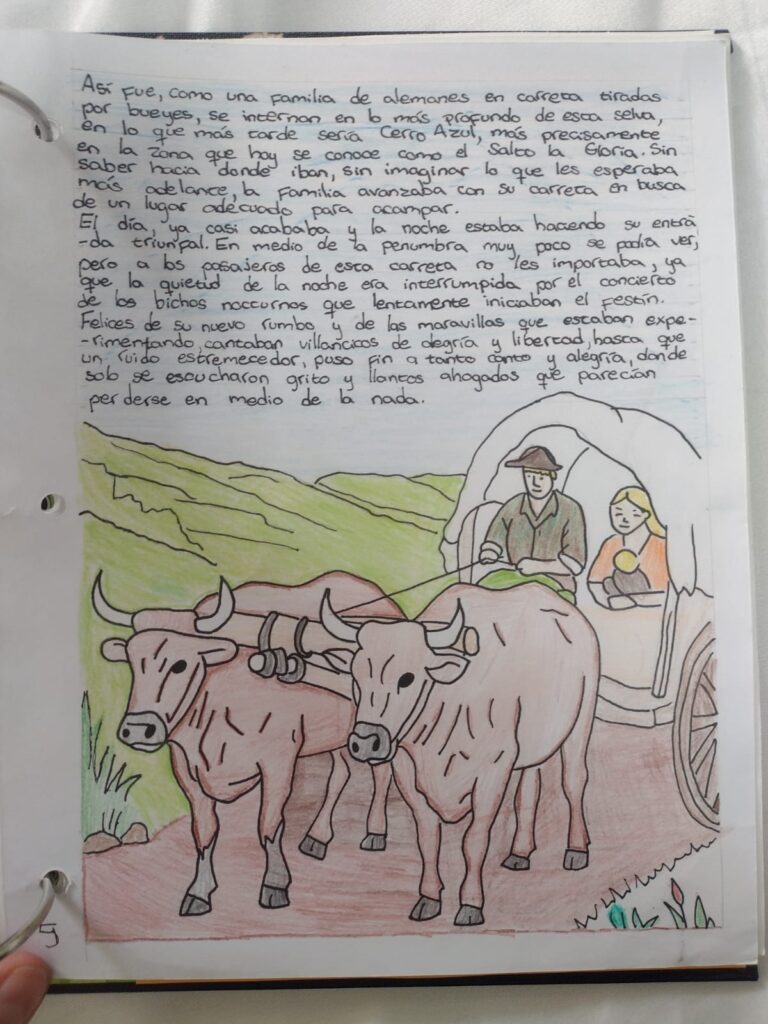 Así fue, como una familia de alemanes en carreta tiradas
por bueyes, se internan en lo más profundo de esta selva,
en lo que más tarde sería Cerro Azul, más precisamente
en la zona que hoy se conoce como el Salto la Gloria. Sin
saber hacia donde iban, sin imaginar lo que les esperaba
más adelante, la familia avanzaba con su carreta en busca
de un lugar adecuado para acampar.
El día, ya casi acababa y la noche estaba haciendo su entra
-da triunfal. En medio de la penumbra muy poco se podía ver,
pero a los pasajeros de esta carreta no les importaba, ya
que la quietid de la noche era interrumpida por el concierto
de los bichos nocturnos que lentamente iniciaban el festín.
Felices de su nuevo rumbo y de las maravillas que estaban expe-
-rimentando, cantaban villancicos de alegría y libertad, hasta que
un ruido estremecedor, puso fin a tanto canto y alegría, donde
solo se escucharon grito y llantos ahogados que parecían
perderse en medio de la nada.
5